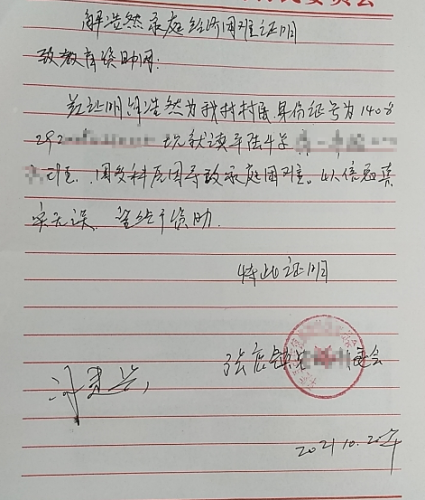 委员会
解浩然家庭经济困难证明
致教育资助网:
兹证明解浩然为我村村民,身份证号为1408
292 现就读平陆中学
班,因多种原因导致家庭困难。以上信息真
实无误,望给予资助。
特此证明
张店镇 委会
2021.10.20号